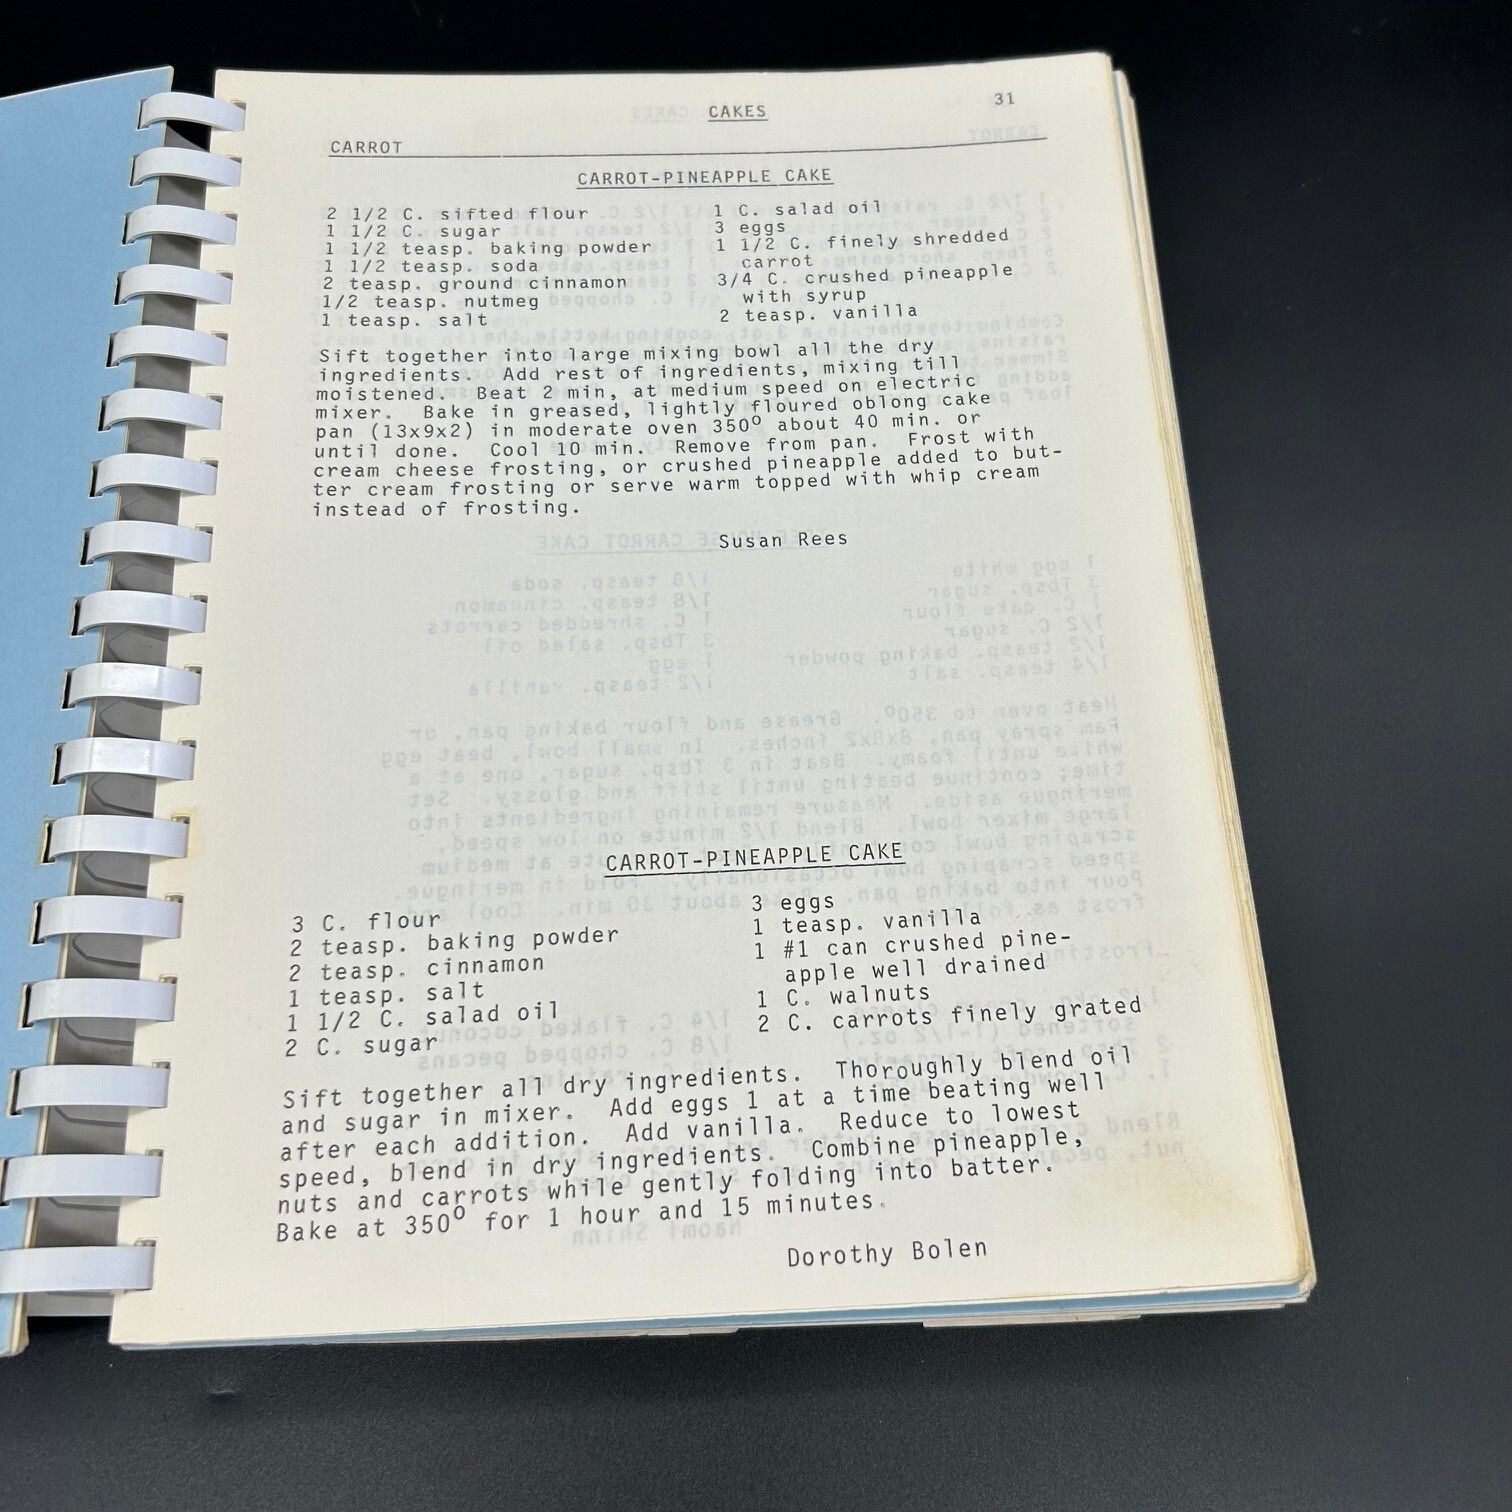 CAKES
31
CARROT
CARROT-PINEAPPLE CAKE
2 1/2 C. sifted flour
1 1/2 C. sugar
1 1/2 teasp. baking powder
1 1/2 teasp. soda
2 teasp. ground cinnamon
1/2 teasp. nutmeg
1 teasp. salt
1 C. salad oil
3 eggs
1 1/2 C. finely shredded
carrot
3/4 C. crushed pineapple
with syrup
2 teasp. vanilla
Sift together into large mixing bowl all the dry
ingredients. Add rest of ingredients, mixing till
moistened. Beat 2 min, at medium speed on electric
mixer. Bake in greased, lightly floured oblong cake
pan (13x9x2) in moderate oven 350° about 40 min. or
until done. Cool 10 min. Remove from pan. Frost with
cream cheese frosting, or crushed pineapple added to but-
ter cream frosting or serve warm topped with whip cream
instead of frosting.
Susan Rees
CARROT-PINEAPPLE CAKE
3 C. flour
2 teasp. baking powder
2 teasp. cinnamon
1 teasp. salt
1 1/2 C. salad oil
2 C. sugar
3 eggs
1 teasp. vanilla
1 #1 can crushed pine-
apple well drained
1 C. walnuts
2 C. carrots finely grated
Sift together all dry ingredients. Thoroughly blend oil
and sugar in mixer. Add eggs 1 at a time beating well
after each addition. Add vanilla. Reduce to lowest
speed, blend in dry ingredients. Combine pineapple,
nuts and carrots while gently folding into batter.
Bake at 350° for 1 hour and 15 minutes.
Dorothy Bolen